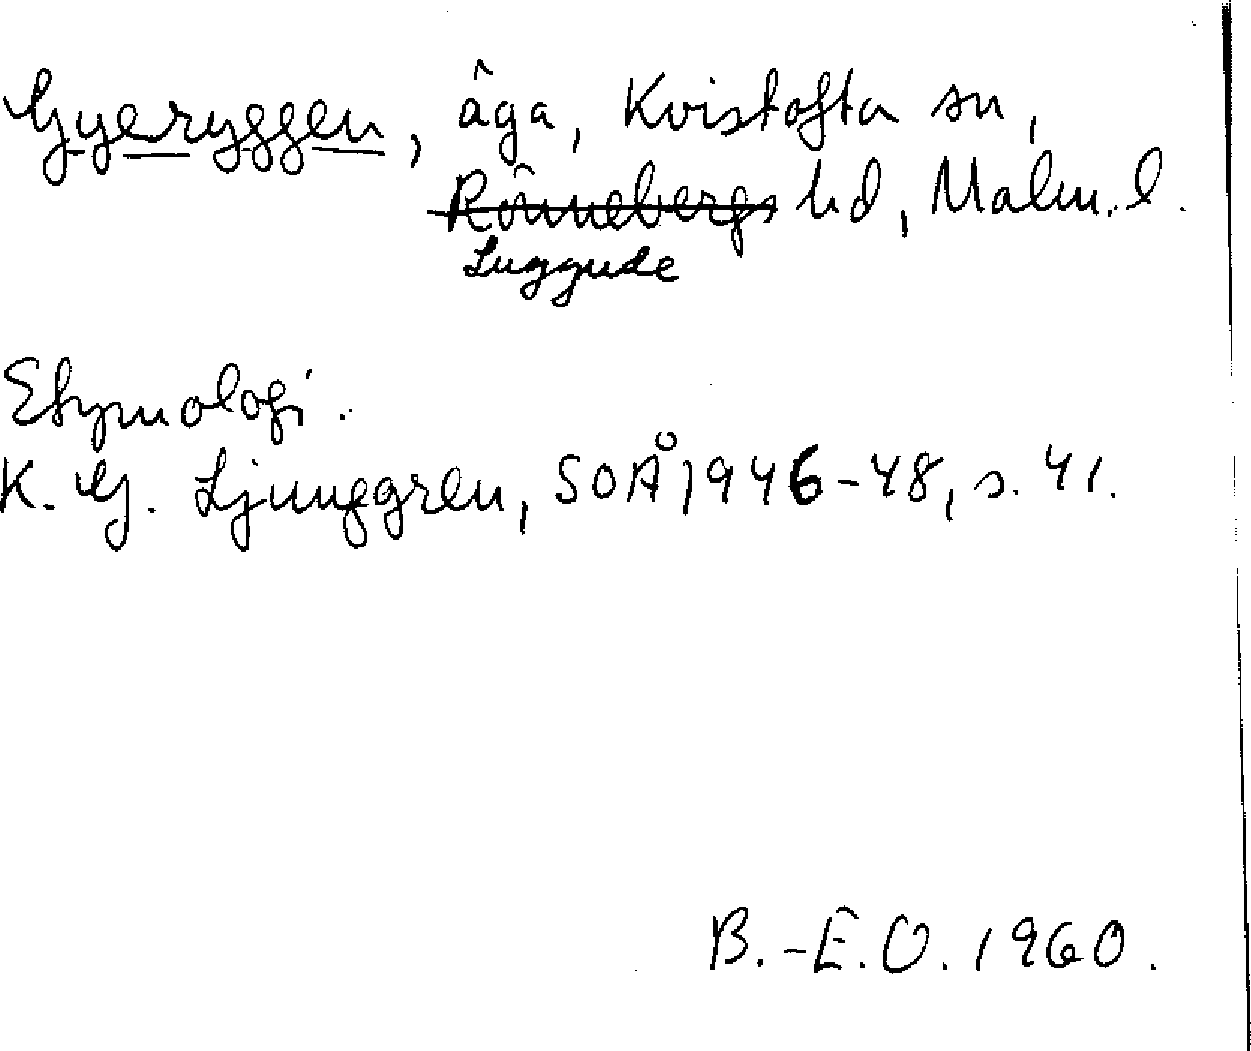 Gyeryggen, äga, Kvistofta sn,
Rönnebergs hd, Malm. l.
Luggude
Etymologi.
K. G. Ljunggren, SOÅ 1946-48, s. 41.
B.-E.O. 1960.